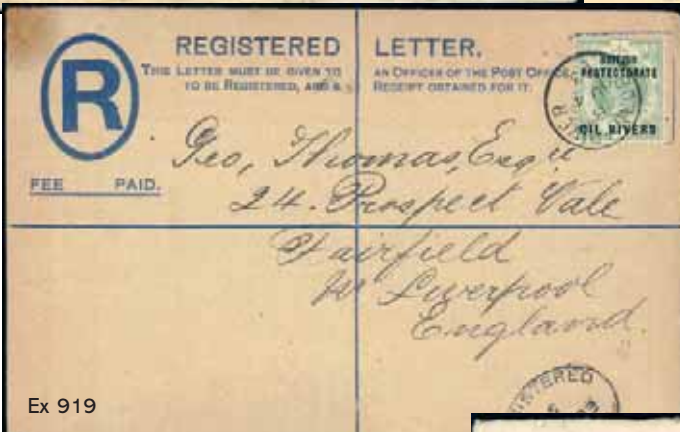 REGISTERED LETTER.
THIS LETTER MUST BE GIVEN TO AN OFFICER OF THE POST OFFICE
TO BE REGISTERED, AND A RECEIPT OBTAINED FOR IT.
R
FEE PAID.
BRITISH
PROTECTORATE
OIL RIVERS
Geo, Thomas, Esqre
24. Prospect Vale
Fairfield
Nr Liverpool
England.
Ex 919